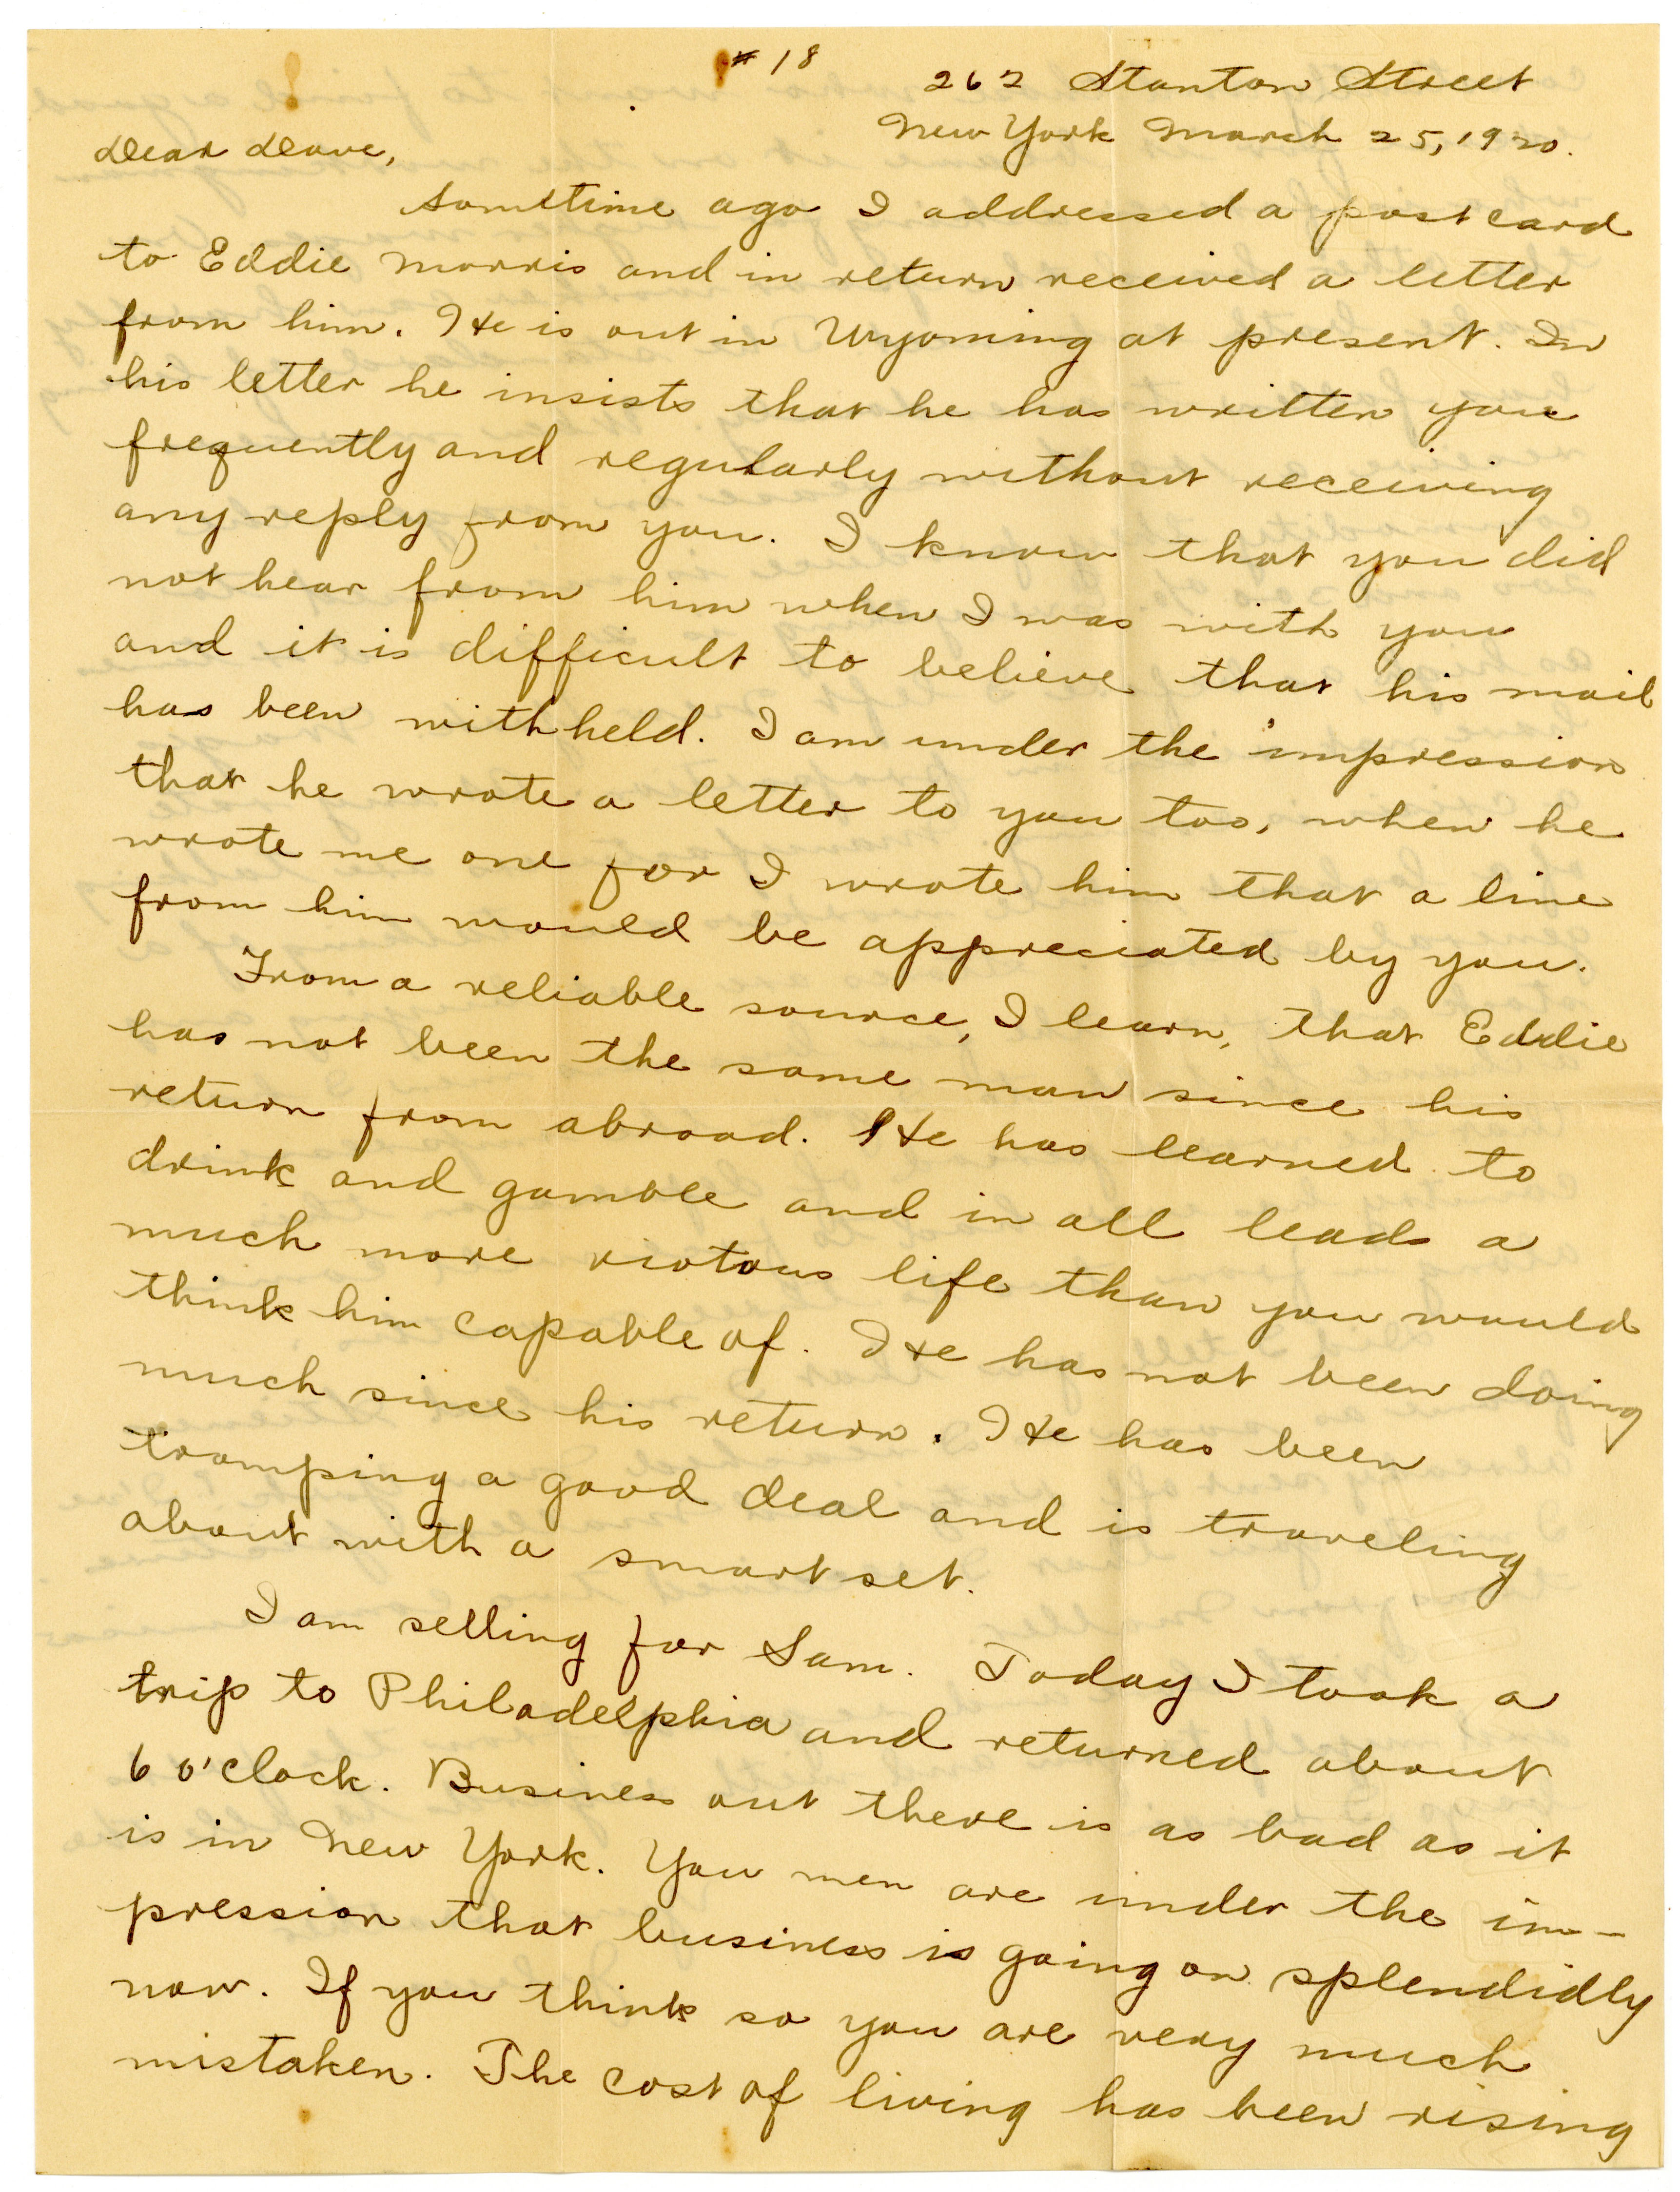 # 18
262 Stanton Street
New York March 25, 1920.
Dear Dave,
Sometime ago I addressed a postcard
to Eddie Morris and in return received a letter
from him. He is out in Wyoming at present. In
his letter he insists that he has written you
frequently and regularly without receiving
any reply from you. I know that you did
not hear from him when I was with you
and it is difficult to believe that his mail
has been withheld. I am under the impression
that he wrote a letter to you too, when he
wrote me one for I wrote him that a line
from him would be appreciated by you.
From a reliable source, I learn, that Eddie
has not been the same man since his
return from abroad. He has learned to
drink and gamble and in all leads a
much more riotous life than you would
think him capable of. He has not been doing
much since his return. He has been
tramping a good deal and is traveling
about with a smart set.
I am selling for Sam. Today I took a
trip to Philadelphia and returned about
6 o'clock. Business out there is as bad as it
is in New York. You men are under the im-
pression that business is going on splendidly
now. If you think so you are very much
mistaken. The cost of living has been rising